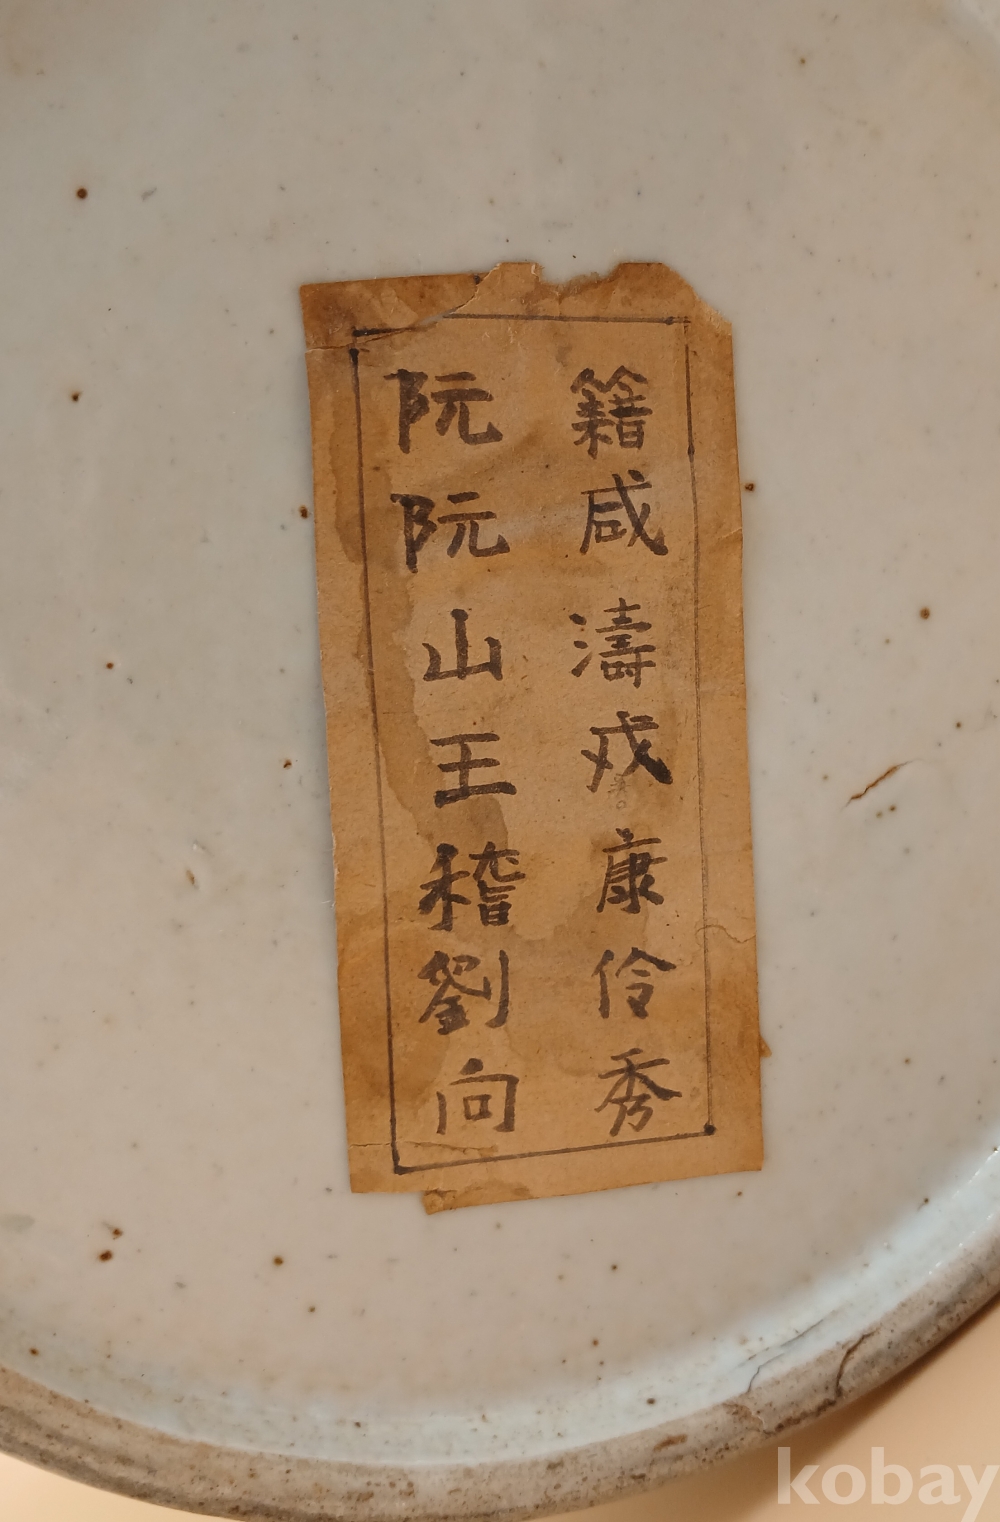 阮籍
阮咸
山濤
王戎
稽康
劉伶
向秀
kobay